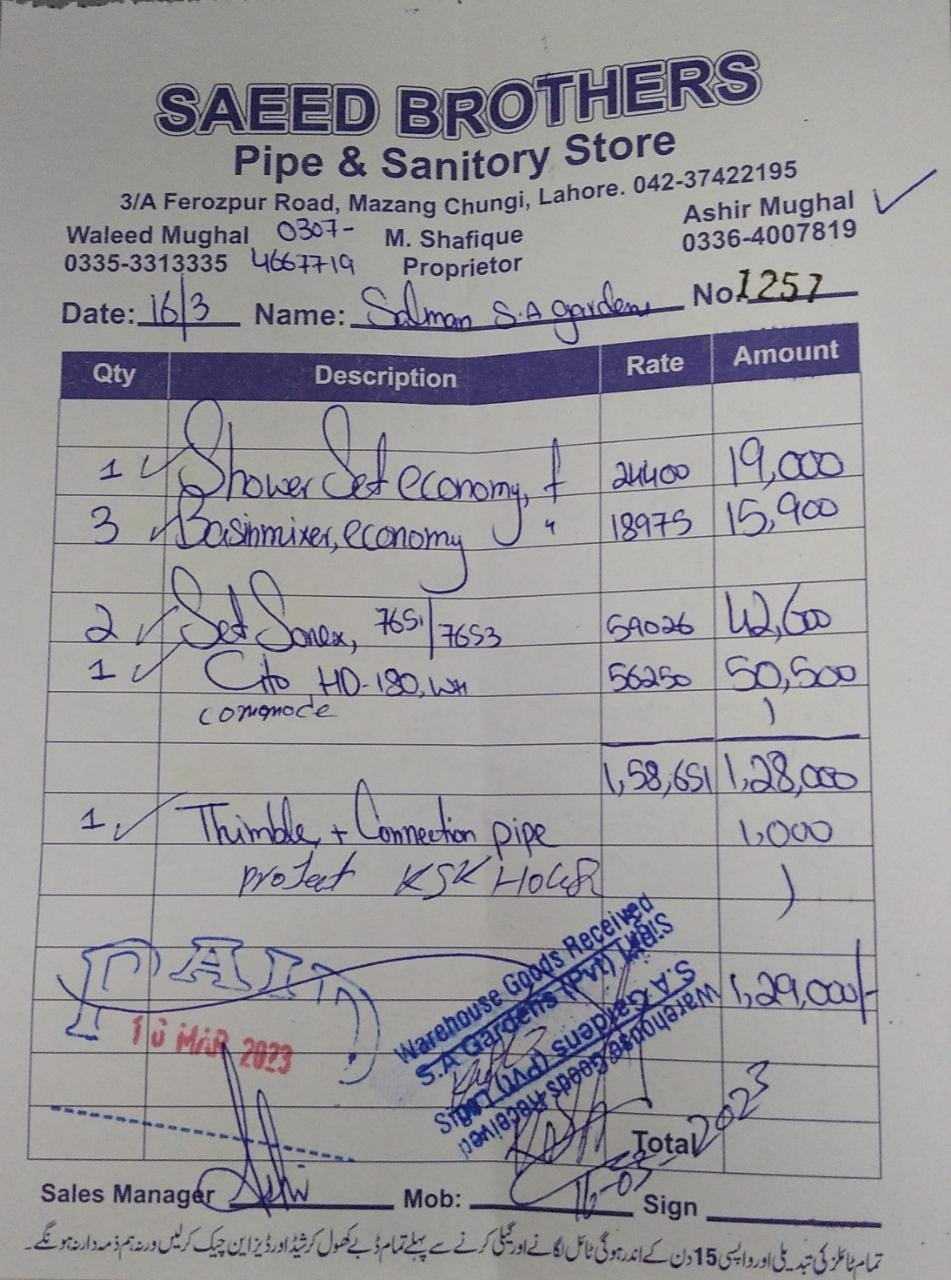 SAEED BROTHERS
Pipe & Sanitory Store
3/A Ferozpur Road, Mazang Chungi, Lahore. 042-37422195
Waleed Mughal 0307- M. Shafique Ashir Mughal
0335-3313335 4667719 Proprietor 0336-4007819
Date: 16/3 Name: Salman S.A gardens No 1257
Qty Description Rate Amount
1 Shower Set economy, f 24400 19,000
3 Basinmixer, economy " 18975 15,900
2 Set Sonex, 7651/7653 59026 42,600
1 Cito HD-180, WH 56250 50,500
commode
1,58,651 1,28,000
1 Thimble + Connection pipe 1,000
project KSK
1,29,000/-
PAID
16 MAR 2023
Warehouse Goods Received
S.A Gardens (Pvt) Ltd
Sign
Warehouse Goods Received
S.A Gardens (Pvt) Ltd
Sign
Total
16-03-2023
Sales Manager Mob: Sign
تمام ٹائلز کی تبدیلی اور واپسی 15 دن کے اندر ہوگی ٹائل لگانے اور گیلی کرنے سے پہلے تمام ڈبے کھول کر شیڈ اور ڈیزاین چیک کرلیں ورنہ ہم ذمہ دار نہ ہونگے۔